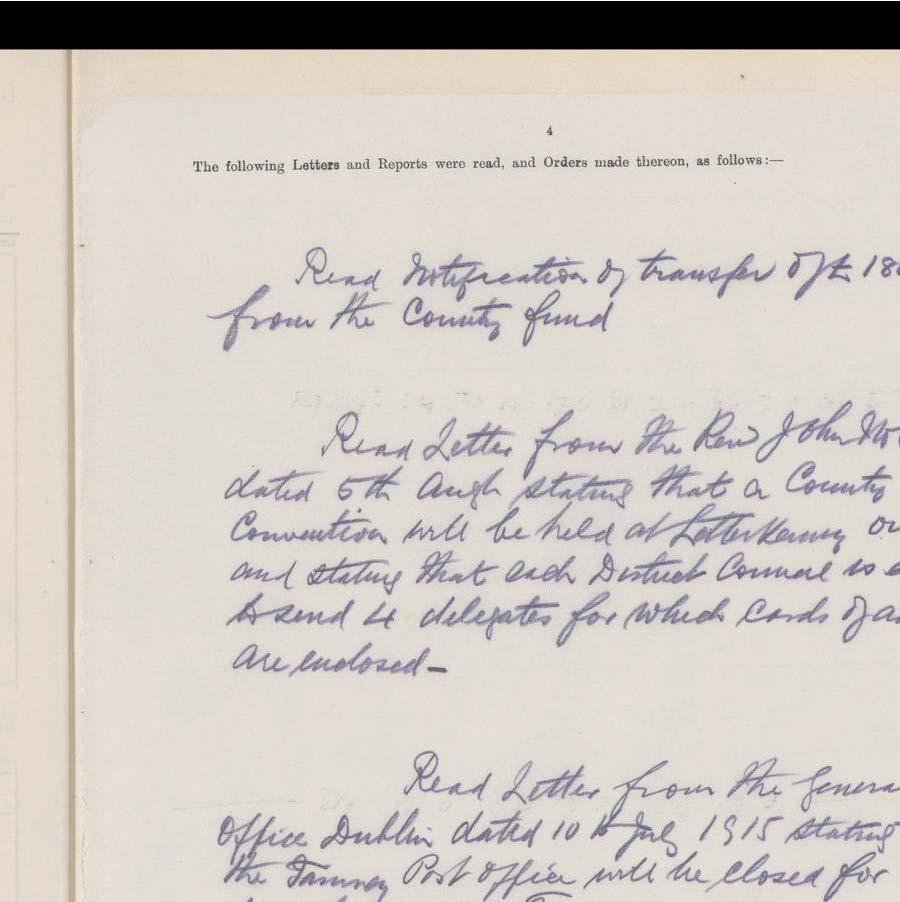 4
The following Letters and Reports were read, and Orders made thereon, as follows:—
Read Notification of transfer of £ 18
from the County fund
Read Letter from the Rev John
dated 5th Augt stating that a County
Convention will be held at Letterkenny on
and stating that each District Council is
to send 4 delegates for which cards of
are enclosed—
Read Letter from the General
Office Dublin dated 10th July 1915 stating
the Tamney Post Office will be closed for